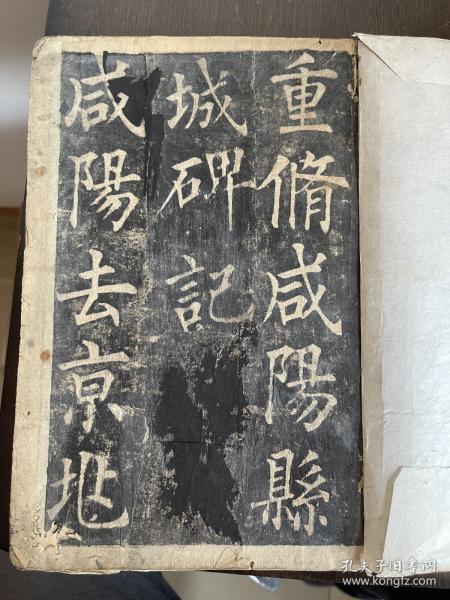 重脩咸陽縣
城碑記
咸陽去京兆
孔夫子旧书网
www.kongfz.com